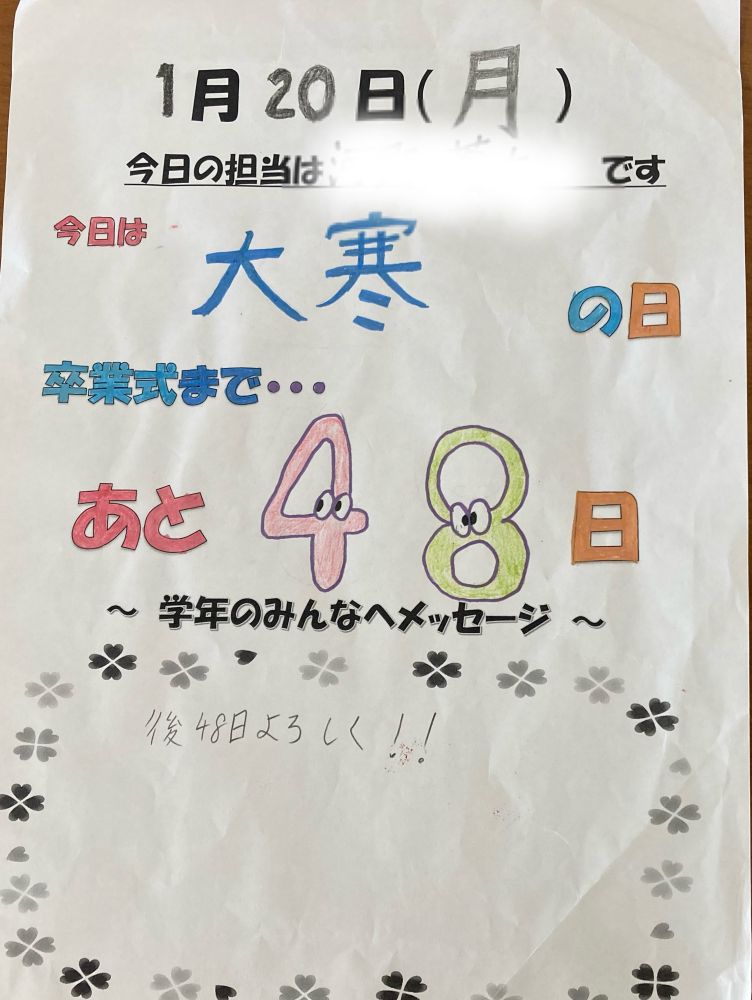 1月20日(月)
今日の担当は です
今日は
大寒
の日
卒業式まで・・・
あと 48 日
～ 学年のみんなへメッセージ ～
後48日よろしく!!